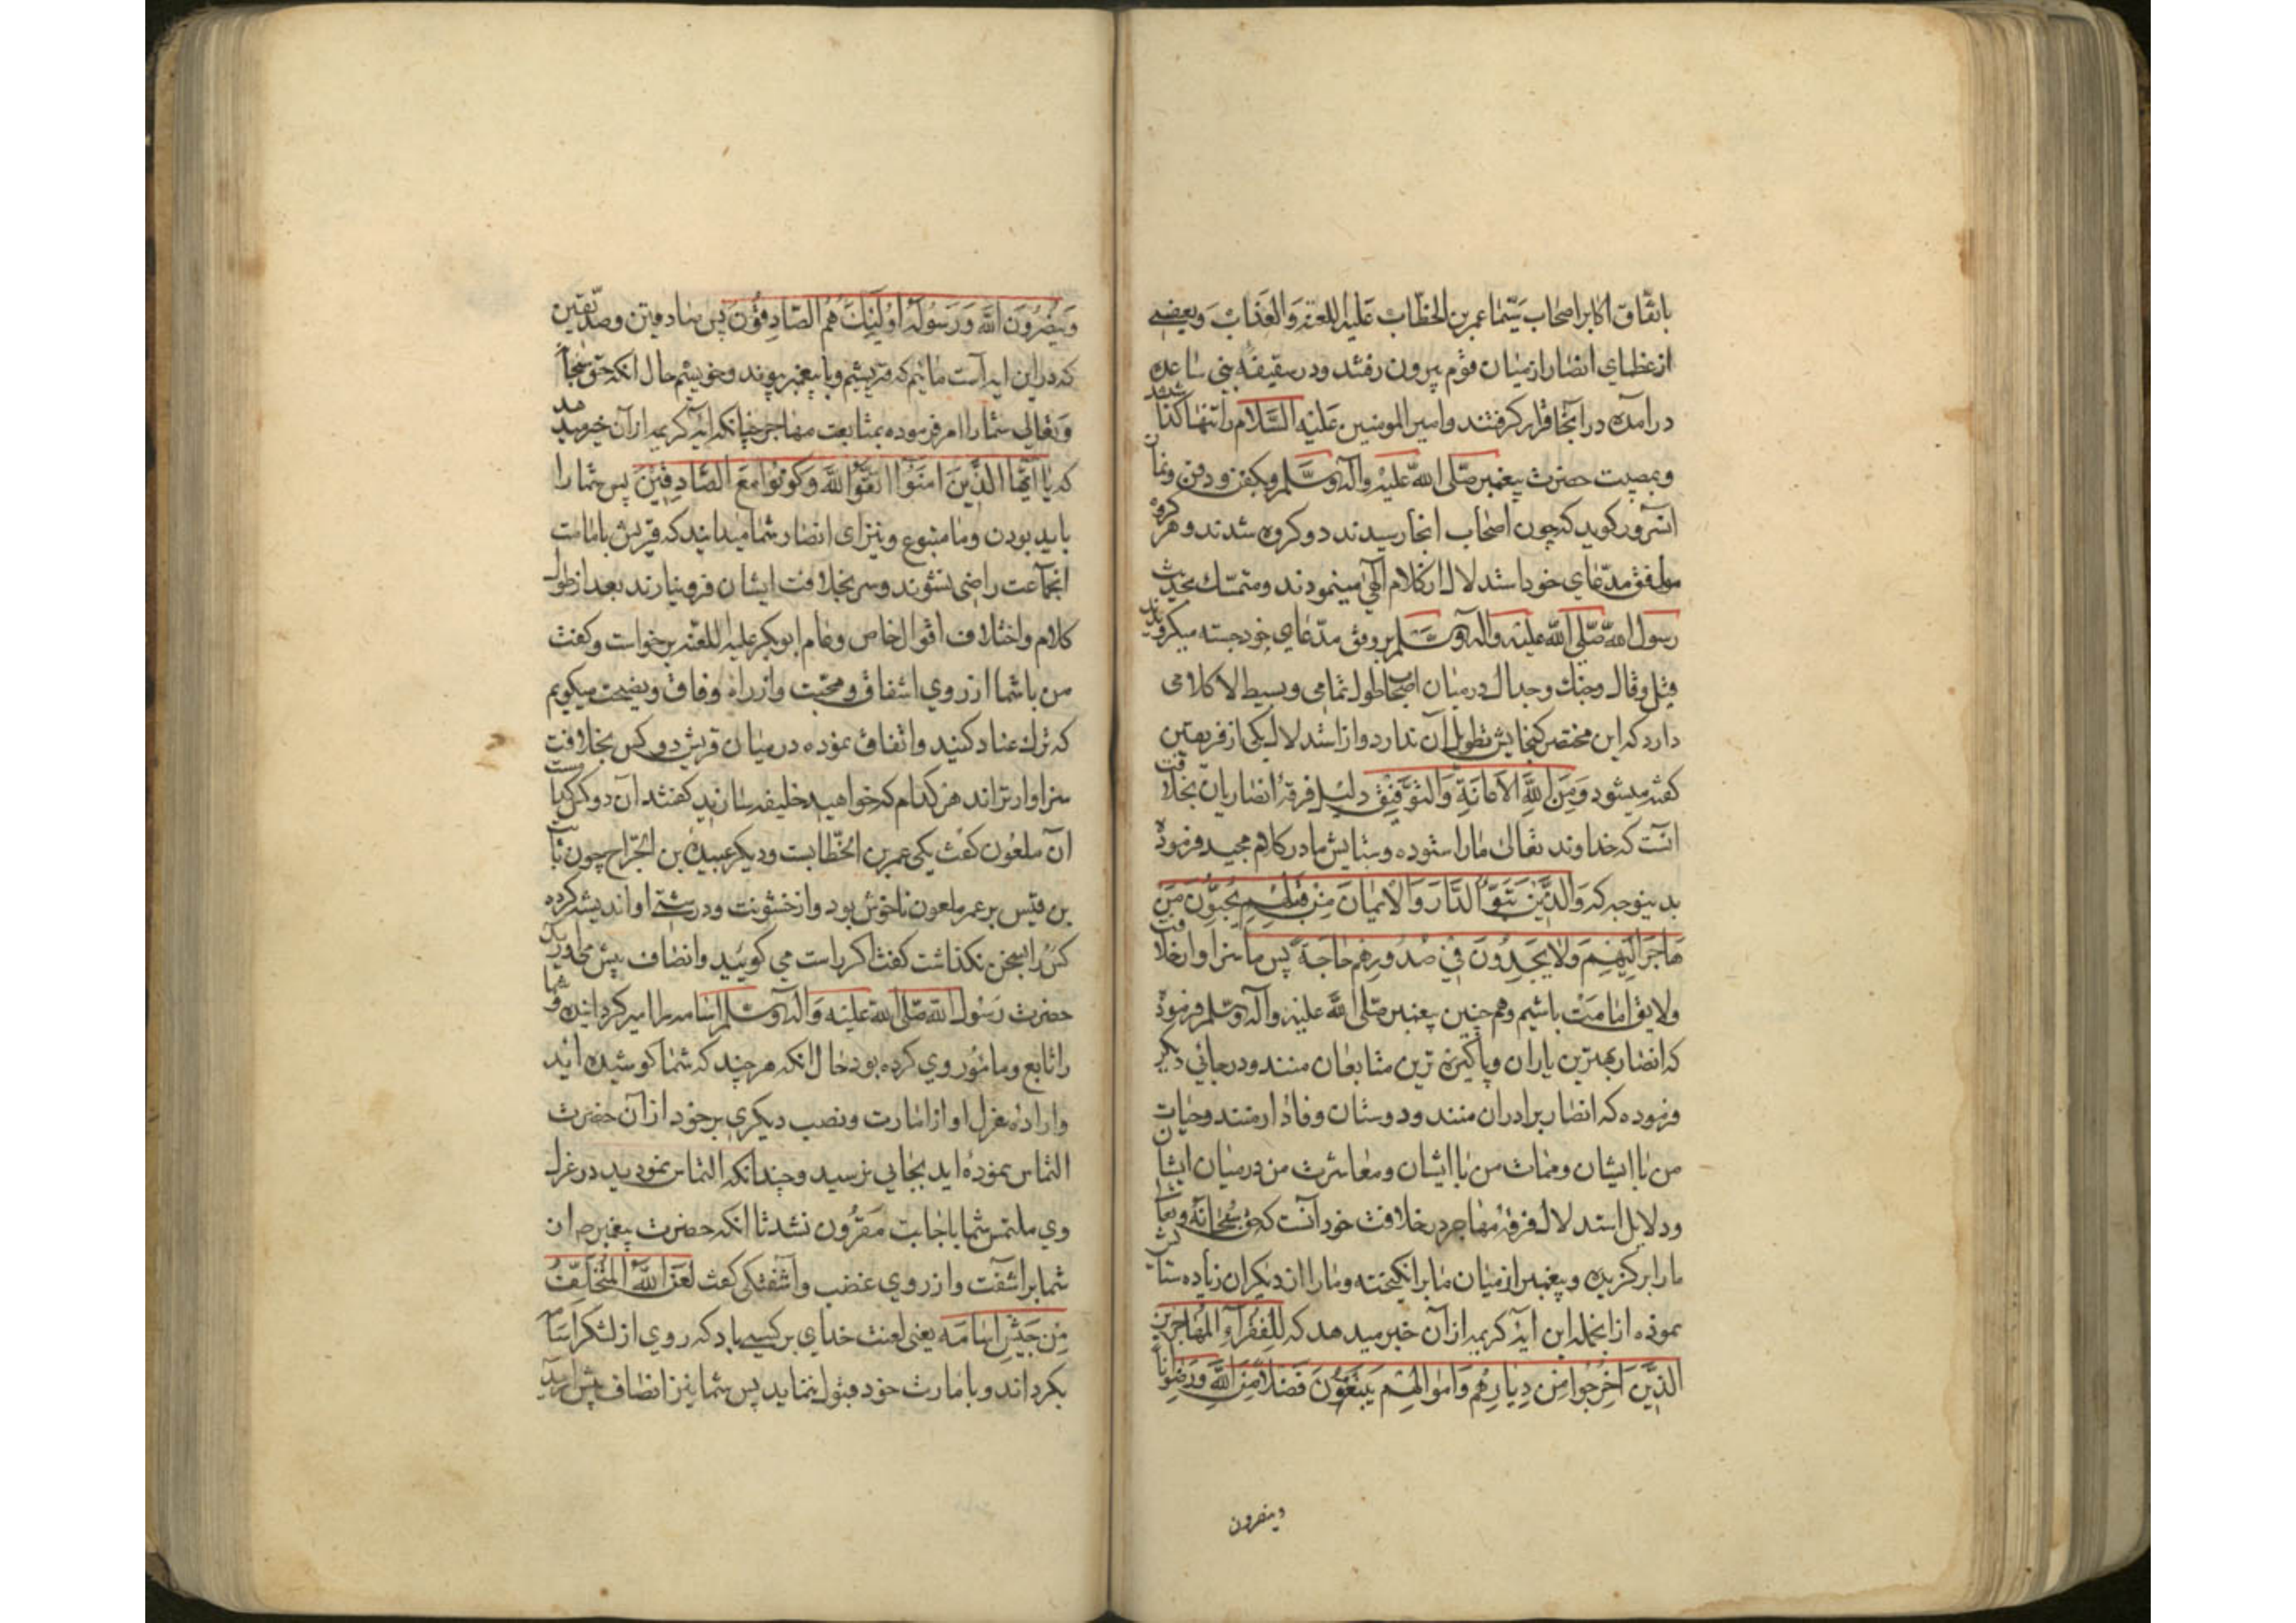 باتفاق اکابر اصحاب سیّما عمر بن الخطّاب علیه اللعنة والعذاب وبعضی
از عظمای انصار از میان قوم بیرون رفتند ودر سقیفه بنی ساعده
درآمده در آنجا قرار گرفتند وامیر المومنین علیه السلام را تنها گذاشتند
وبمصیبت حضرت پیغمبر صلّی الله علیه وآله وسلّم وبکفن ودفن ونماز
آنسرور گوید که چون اصحاب آنجا رسیدند دو گروه شدند وهر گروه
موافق مدّعای خود استدلال از کلام الهی مینمودند ومتمسّک بحدیث
رسول الله صلّی الله علیه وآله وسلّم بر وفق مدّعای خود جسته میکردیدند
قیل وقال وجنک وجدال در میان اصحاب طول تمامی وبسیط الا کلامی
دارد که این مختصر کنجایش تطویل آن ندارد واز استدلال یکی از فریقین
گفته میشود ومن الله الاعانة والتوفیق دلیل فرقه انصاریان بخلافت
آنست که خداوند تعالی ما را ستوده وستایش ما در کلام مجید فرموده
بدینوجه که والذین تبوّؤا الدار والایمان من قبلهم یحبّون من
هاجر الیهم ولا یجدون فی صدورهم حاجة پس ما سزاوار خلافت
ولایق امامت باشیم وهم چنین پیغمبر صلی الله علیه وآله وسلم فرموده
که انصار بهترین یاران وپاکیزه ترین متابعان منند ودر جائی دیگر
فرموده که انصار برادران منند ودوستان وفادار منند وحیات
من با ایشان وممات من با ایشان ومعاشرت من در میان ایشان
ودلایل استدلال فرقه مهاجر در خلافت خود آنست که حق سبحانه وتعالی
ما را برگزیده وپیغمبر از میان ما برانگیخته وما را از دیگران زیاده ستایش
نموده از انجمله این آیه کریمه از آن خبر میدهد که للفقراء المهاجرین
الذین اخرجوا من دیارهم واموالهم یبتغون فضلا من الله ورضوانا
وینصرون
وینصرون الله ورسوله اولئک هم الصادقون پس صادقین وصدّیقین
که در این آیه است مائیم که قریشیم وبا پیغمبر پیوند وخویشیم حال آنکه حق سبحانه
وتعالی شما را امر فرموده بمتابعت مهاجر چنانکه آیه کریمه از آن خبر میدهد
که یا ایّها الذین امنوا اتقوا الله وکونوا مع الصادقین پس شما را
باید بودن وما متبوع ونیز ای انصار شما میدانید که قریش بامامت
انجماعت راضی نشوند وسر بخلافت ایشان فرو نیارند بعد از طول
کلام واختلاف اقوال خاص وعام ابوبکر علیه اللعنه برخواست وگفت
من با شما از روی اشفاق ومحبّت واز راه وفاق ونصیحت میگویم
که ترک عناد کنید واتفاق نموده در میان قریش دو کس بخلافت
سزاوارتراند هر کدام که خواهید خلیفه سازید گفتند آن دو کس کیست
آن ملعون گفت یکی عمر بن الخطابست ودیگر عبیده بن الجرّاح چون ثابت
بن قیس بر عمر ملعون ناخوش بود واز خشونت ودرشتی او اندیشه کرده
کس را سخن نگذاشت گفت اگر راست می گویید وانصاف پیش می آورید
حضرت رسول الله صلّی الله علیه وآله وسلّم اسامه را امیر گردانیده وشما
را تابع ومامور وی کرده بود حال آنکه هر چند که شما کوشیده اید
واراده عزل او از امارت ونصب دیگری بر خود از آن حضرت
التماس نموده اید بجایی نرسید وچندانکه التماس نمودید در عزل
وی ملتمس شما باجابت مقرون نشد تا آنکه حضرت پیغمبر ص از آن
شما برآشفت واز روی غضب وآشفتگی گفت لعن الله المتخلّف
من جیش اسامه یعنی لعنت خدای بر کسی باد که روی از لشکر اسامه
بگرداند وبامارت خود قبول ننماید پس شما نیز انصاف پیش آرید